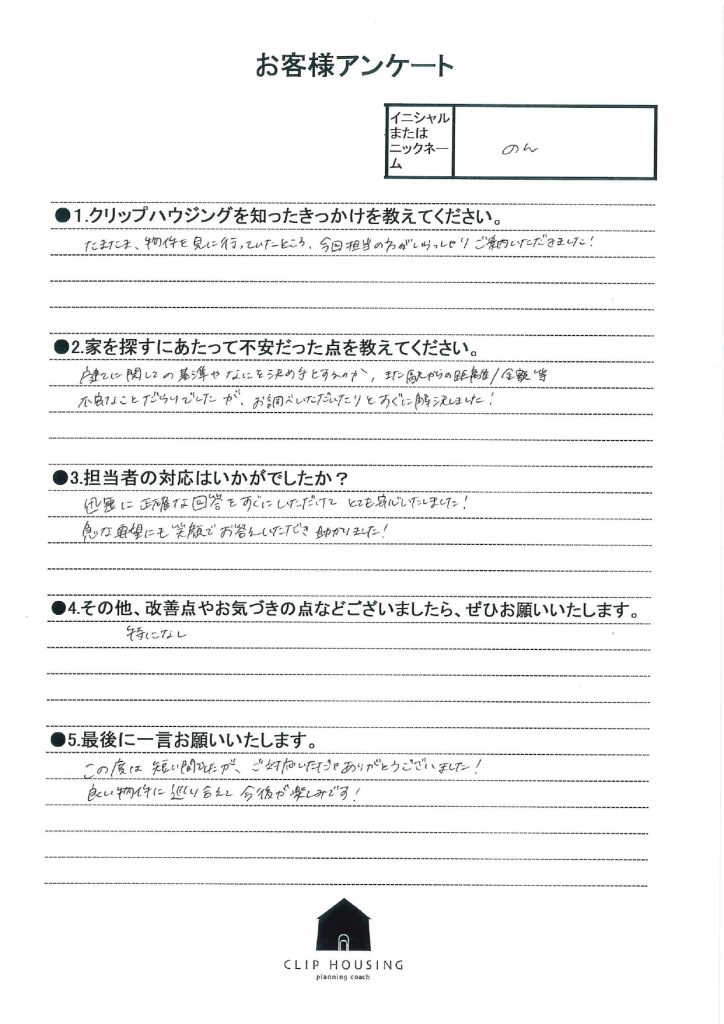 お客様アンケート
イニシャル
または
ニックネー
ム
のん
●1.クリップハウジングを知ったきっかけを教えてください。
たまたま、物件を見に行っていたところ、今回担当の方がいらっしゃり ご案内いただきました!
●2.家を探すにあたって不安だった点を教えてください。
戸建てに関しての基準やなにを決め手とするのか、また駅からの距離/金額等
不安なことだらけでしたが、お調べいただいたりとすぐに解決しました!
●3.担当者の対応はいかがでしたか？
迅速に正確な回答をすぐにしただけて とても安心いたしました!
急な要望にも笑顔でお答えいただき 助かりました!
●4.その他、改善点やお気づきの点などございましたら、ぜひお願いいたします。
特になし
●5.最後に一言お願いいたします。
この度は 短い間でしたが、ご対応いただきありがとうございました!
良い物件に 巡り合えて 今後が楽しみです!
CLIP HOUSING
planning coach